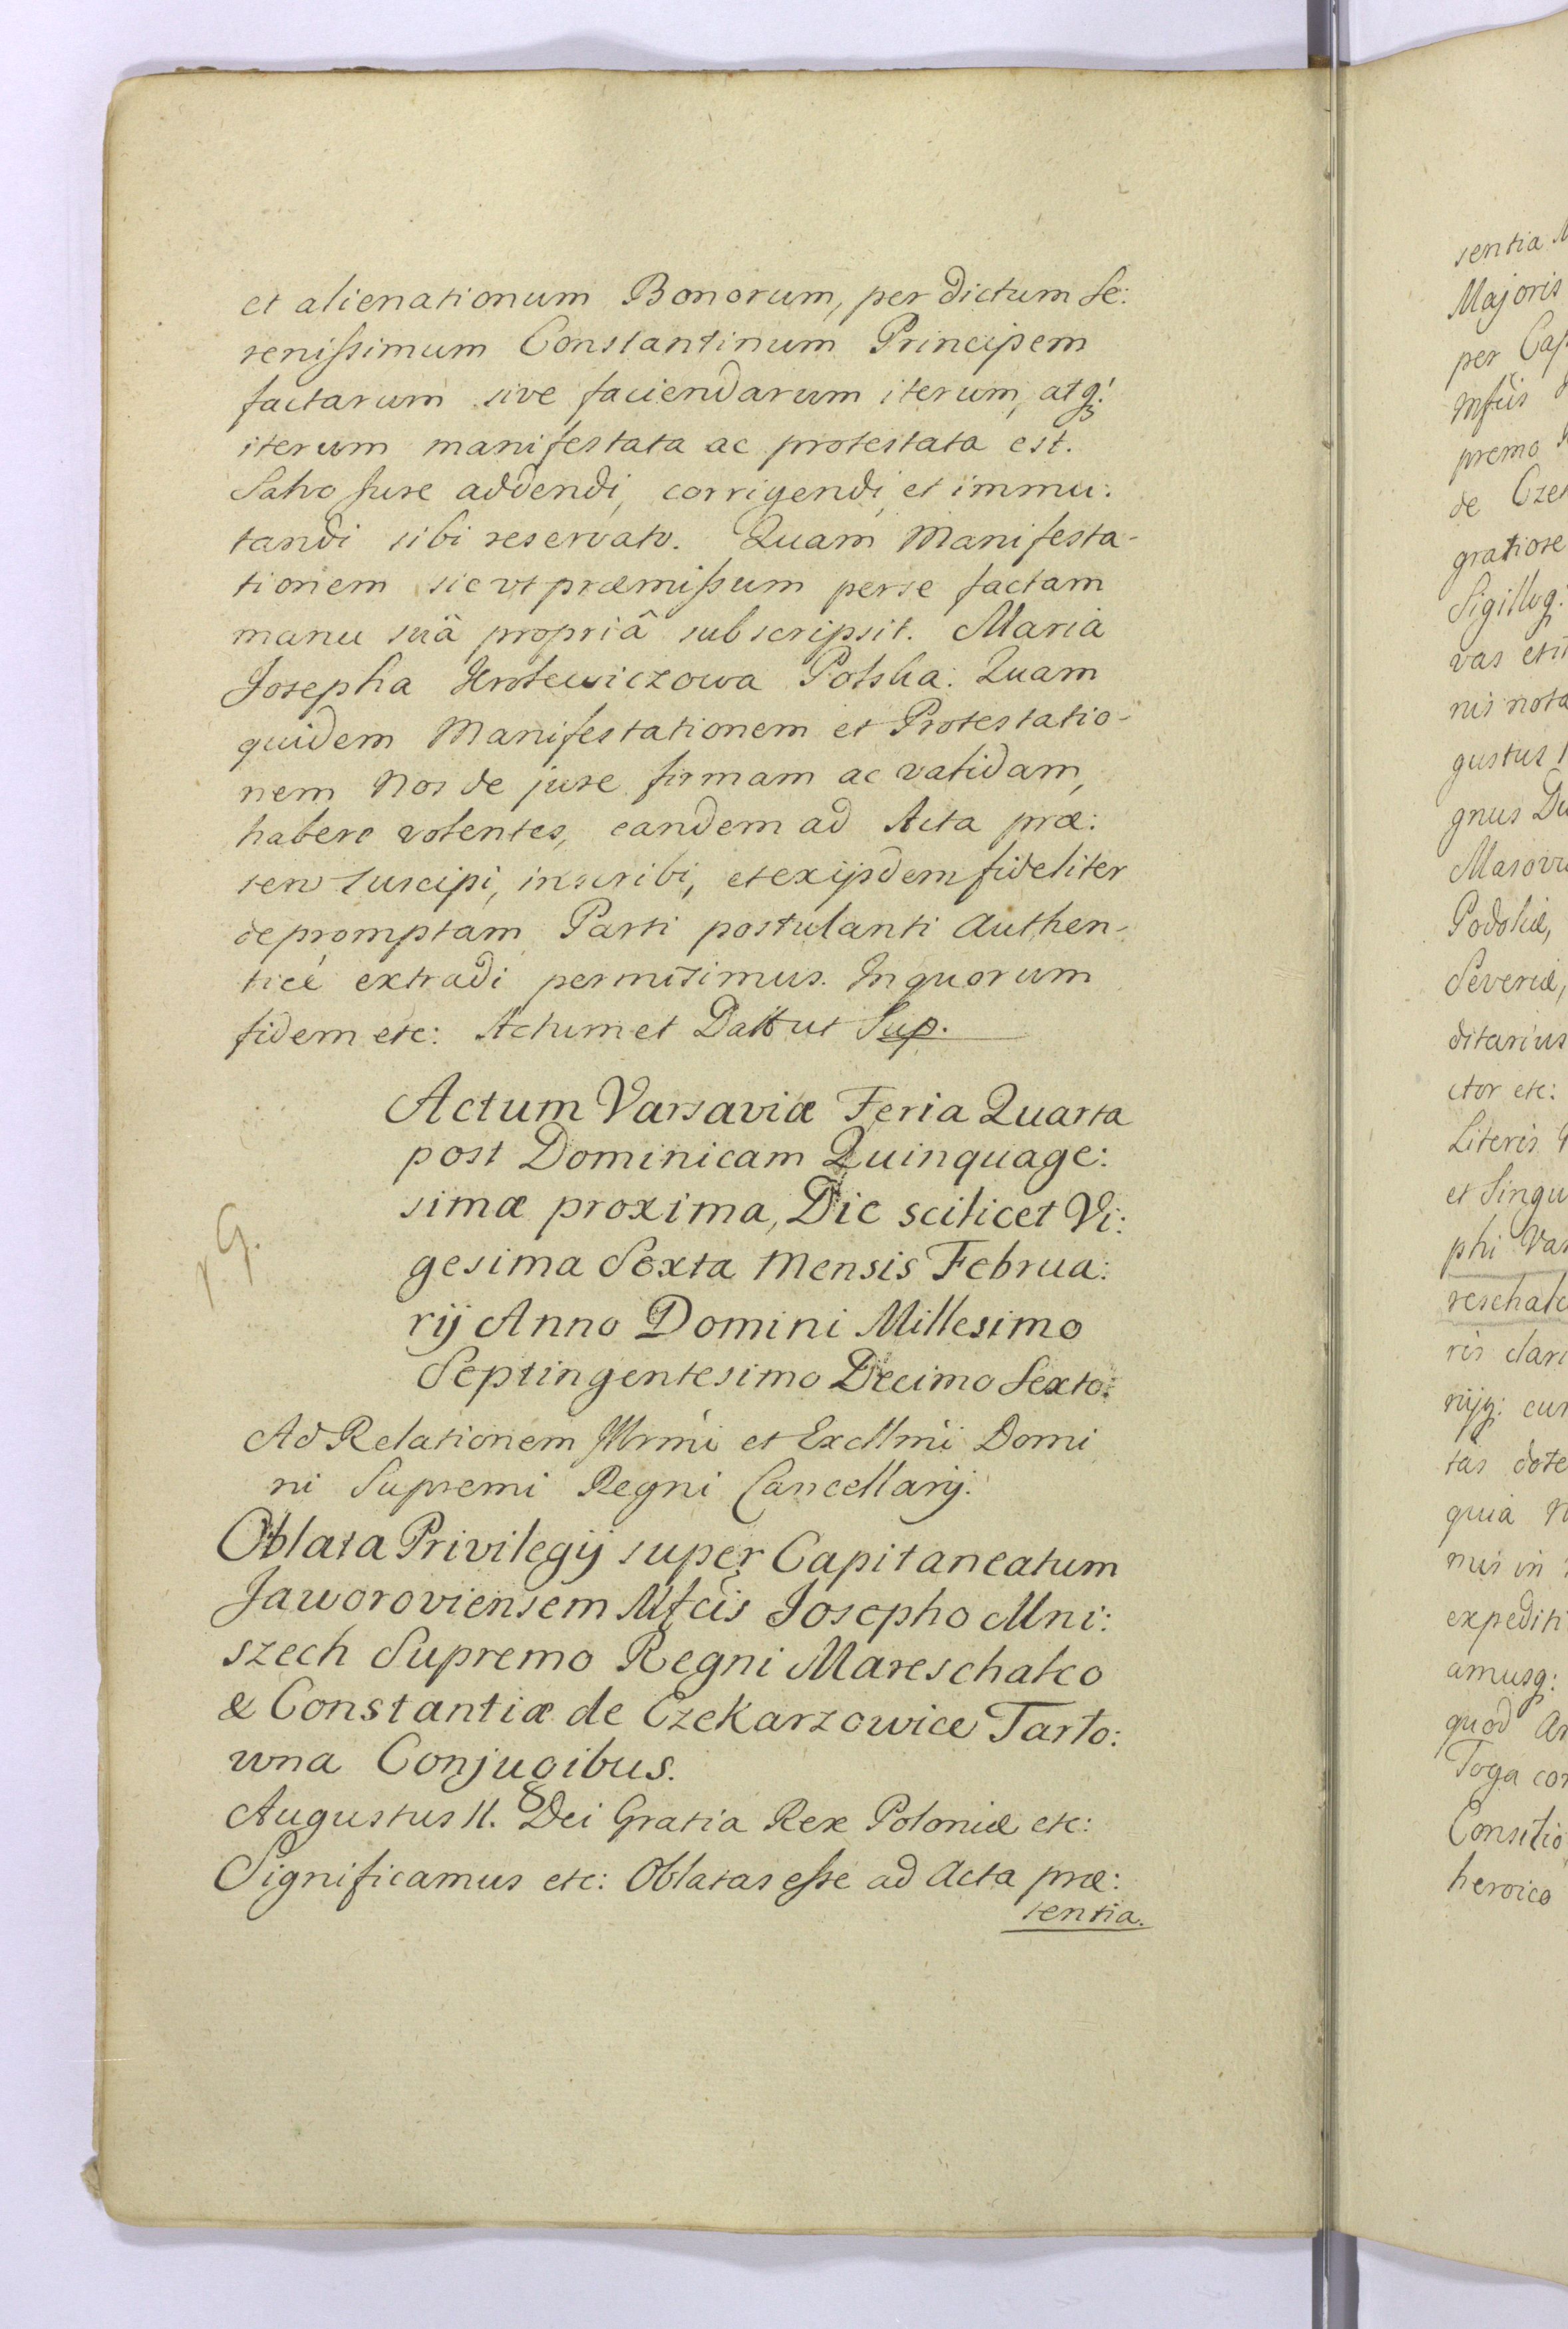 et alienationum Bonorum, per dictum Se:
renissimum Constantinum Principem
factarum sive faciendarum iterum, atq;
iterum manifestata ac protestata est.
Salvo Jure addendi, corrigendi, et immu:
tandi sibi reservato. Quam Manifesta-
tionem sicut præmissum per se factam
manu suâ propriâ subscripsit. Maria
Josepha Krolewiczowa Polska. Quam
quidem Manifestationem et Protestatio-
nem Nos de jure firmam ac validam,
habere volentes, eandem ad Acta præ:
sen suscipi, inscribi, et exijsdem fideliter
depromptam Parti postulanti Authen-
ticé extradi permisimus. In quorum
fidem etc: Actum et Datt ut Sup.
Actum Varsaviæ Feria Quarta
post Dominicam Quinquage:
simæ proxima, Die scilicet Vi:
gesima Sexta Mensis Februa:
rij Anno Domini Millesimo
Septingentesimo Decimo Sexto.
Ad Relationem Illrmi et Excllmi Domi
ni Supremi Regni Cancellarij.
Oblata Privilegij super Capitaneatum
Jaworoviensem Mfcis Josepho Mni:
szech Supremo Regni Mareschalco
& Constantiæ de Czekarzowice Tarło:
wna Conjugibus.
Augustus II. Dei Gratia Rex Poloniæ etc:
Significamus etc: Oblatas esse ad Acta præ:
sentia.
sentia
Majoris
per Cap
Mfcis
premo
de Czek
gratiose
Sigilluq:
vas
nis nota
gustus
gnus Du
Masovi
Podoliæ,
Severiæ,
ditarius
ctor etc:
Literis
et Singu
phi Van
reschalc
ris clari
nijq: cum
tas dote
quia
nus in
expediti
amusq:
quod
Toga con
Consilio
heroico